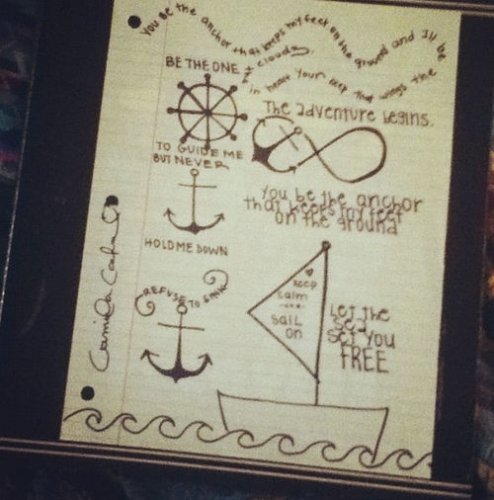 You be the anchor that keeps my feet on the ground and I'll be
the wings that keep your heart in
the clouds.
BE THE ONE
The adventure begins.
TO GUIDE ME
BUT NEVER
You be the anchor
that keeps my feet
on the ground
HOLD ME DOWN
REFUSE TO SINK
keep
calm
sail
on
Let the
sea
set you
FREE